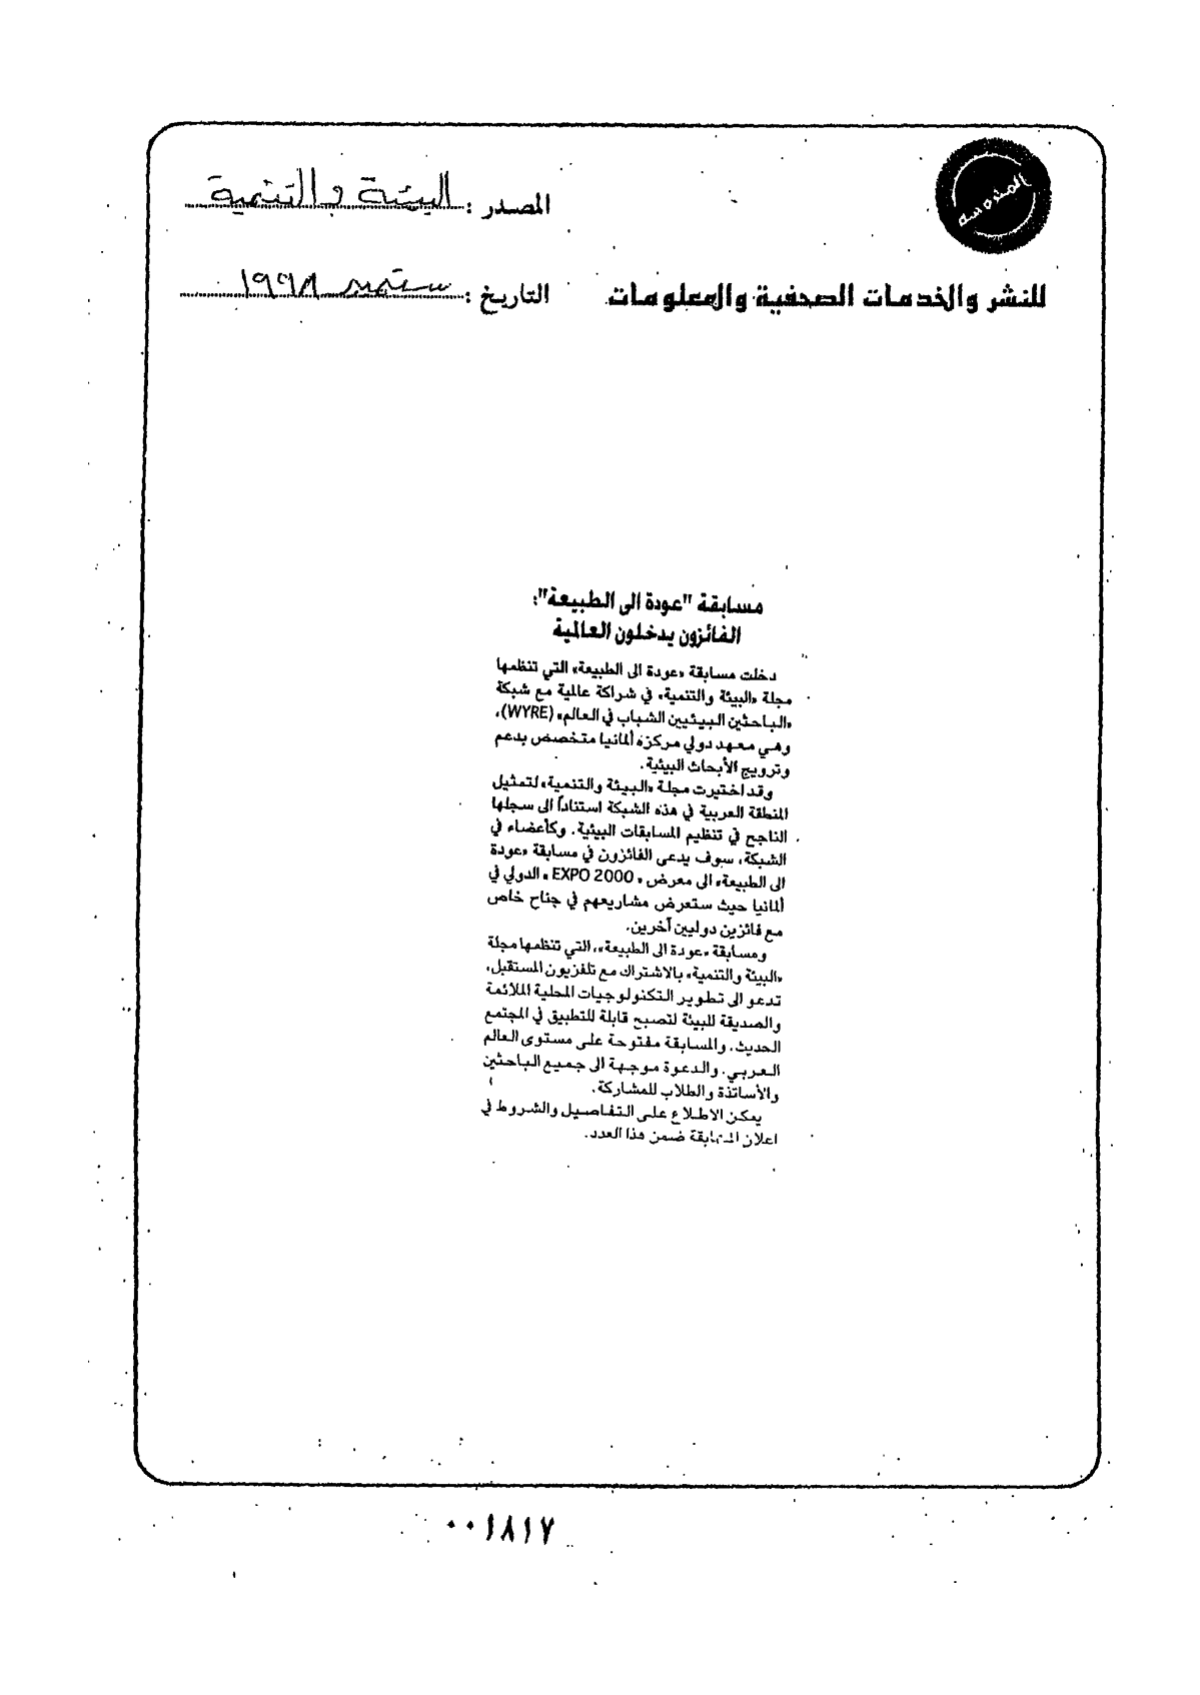 المصدر : البيئة والتنمية
للنشر والخدمات الصحفية والمعلومات
التاريخ : سبتمبر ١٩٩٨
مسابقة "عودة الى الطبيعة":
الفائزون يدخلون العالمية
دخلت مسابقة «عودة الى الطبيعة» التي تنظمها
مجلة «البيئة والتنمية» في شراكة عالمية مع شبكة
«الباحثين البيئيين الشباب في العالم» (WYRE)،
وهي معهد دولي مركزه ألمانيا متخصص بدعم
وترويج الأبحاث البيئية.
وقد اختيرت مجلة «البيئة والتنمية» لتمثيل
المنطقة العربية في هذه الشبكة استناداً الى سجلها
الناجح في تنظيم المسابقات البيئية. وكأعضاء في
الشبكة، سوف يدعى الفائزون في مسابقة «عودة
الى الطبيعة» الى معرض «EXPO 2000» الدولي في
ألمانيا حيث ستعرض مشاريعهم في جناح خاص
مع فائزين دوليين آخرين.
ومسابقة «عودة الى الطبيعة»، التي تنظمها مجلة
«البيئة والتنمية» بالاشتراك مع تلفزيون المستقبل،
تدعو الى تطوير التكنولوجيات المحلية الملائمة
والصديقة للبيئة لتصبح قابلة للتطبيق في المجتمع
الحديث. والمسابقة مفتوحة على مستوى العالم
العربي. والدعوة موجهة الى جميع الباحثين
والأساتذة والطلاب للمشاركة.
يمكن الاطلاع على التفاصيل والشروط في
اعلان المسابقة ضمن هذا العدد.
٠٠١٨١٧